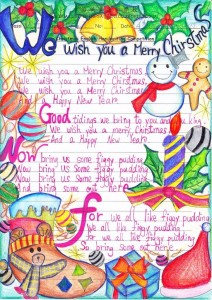 We wish you a Merry Chirstmas
We wish you a Merry Christmas
We wish you a Merry Christmas
We wish you a Merry Christmas
And a Happy New Year
Good tidings we bring to you and
We wish you a merry Christmas
And a Happy New Year
Now bring us some figgy pudding
Now bring us some figgy pudding
Now bring us some figgy pudding
And bring some out here
For we all like figgy pudding
We all like figgy pudding
For we all like figgy pudding
So bring some out here